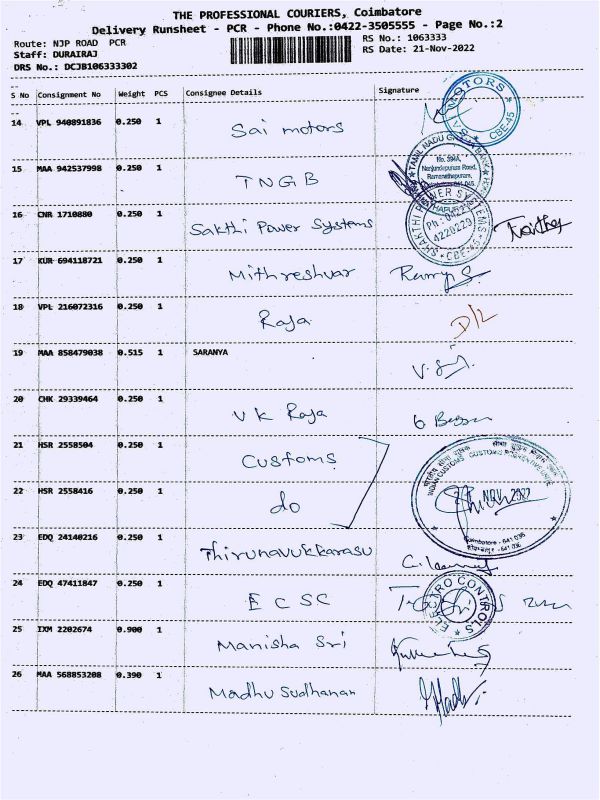 THE PROFESSIONAL COURIERS, Coimbatore
Delivery Runsheet - PCR - Phone No.:0422-3505555 - Page No.:2
Route: NJP ROAD PCR
RS No.: 1063333
Staff: DURAIRAJ
RS Date: 21-Nov-2022
DRS No.: DCJB106333302
S No Consignment No Weight PCS Consignee Details Signature
14 VPL 940891836 0.250 1 Sai motors
MOTORS CBE-45
15 MAA 942537998 0.250 1 TNGB
TAMIL NADU GRAMA BANK
No. 594A,
Nanjundapuram Road,
Ramanathapuram,
16 CNR 1710880 0.250 1 Sakthi Power Systems
SHAKTHI POWER SYSTEMS
Ph : 0422
4220229
CBE-45
17 KUR 694118721 0.250 1 Mithreshvar
18 VPL 216072316 0.250 1 Raja D/L
19 MAA 858479038 0.515 1 SARANYA
20 CHK 29339464 0.250 1 VK Raja
21 HSR 2558504 0.250 1 Customs
INDIAN CUSTOMS
NOV 2022
Coimbatore - 641 036
22 HSR 2558416 0.250 1 do
23 EDQ 24140216 0.250 1 Thirunavukkarasu
24 EDQ 47411847 0.250 1 ECSC
CONTROLS
25 IXM 2202674 0.900 1 Manisha Sri
26 MAA 568853208 0.390 1 Madhu Sudhanan